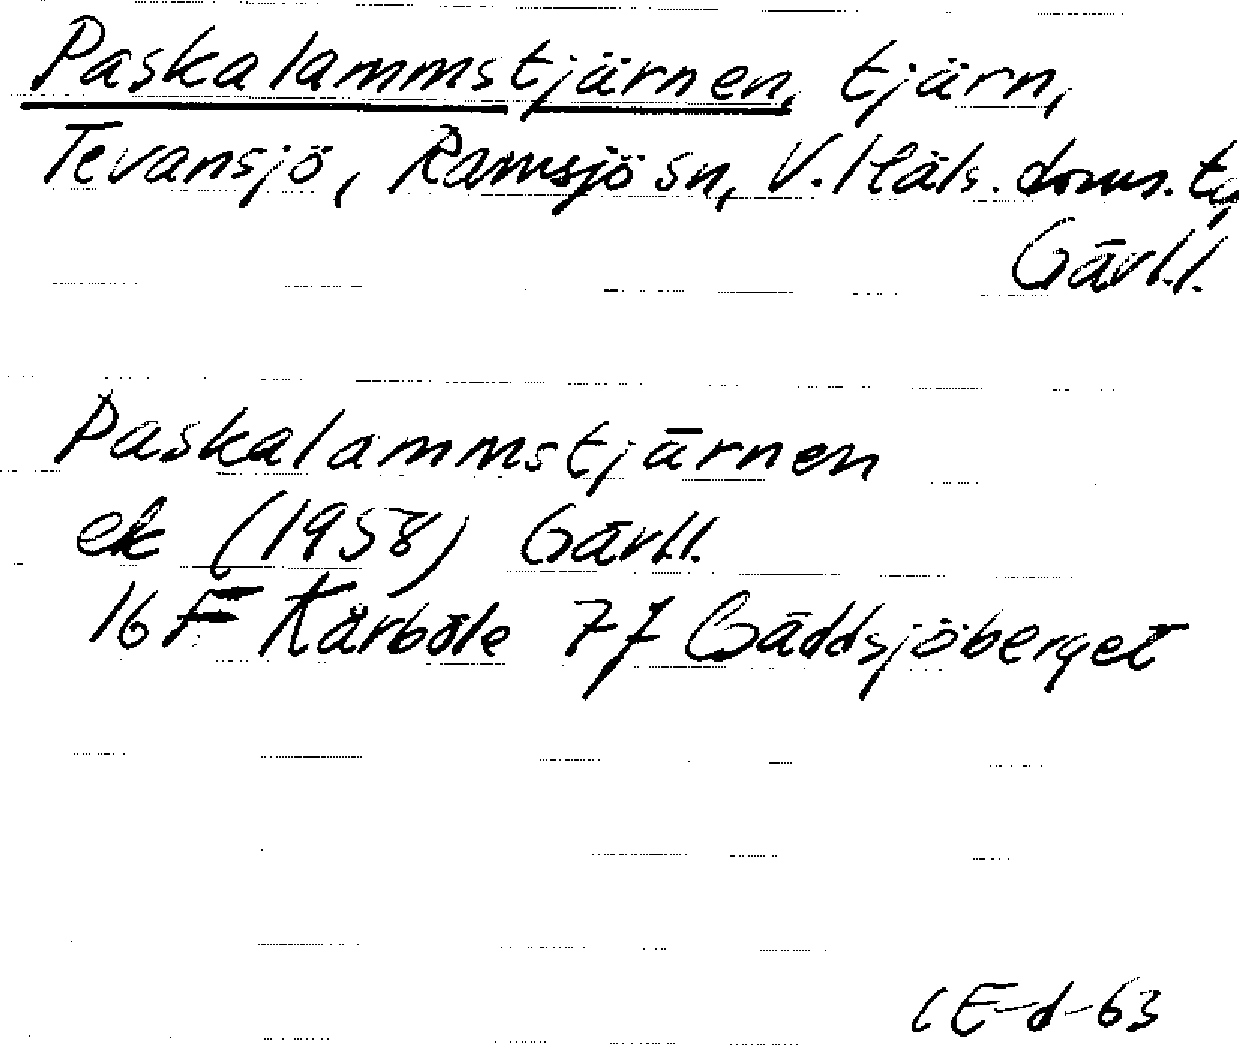 Paskalammstjärnen, tjärn,
Tevansjö, Ramsjö sn, V. Häls. doms. tg,
Gävl.l.
Paskalammstjärnen
ek (1958) Gävl.l.
16 F Kårböle 7f Gäddsjöberget
CE-d-63